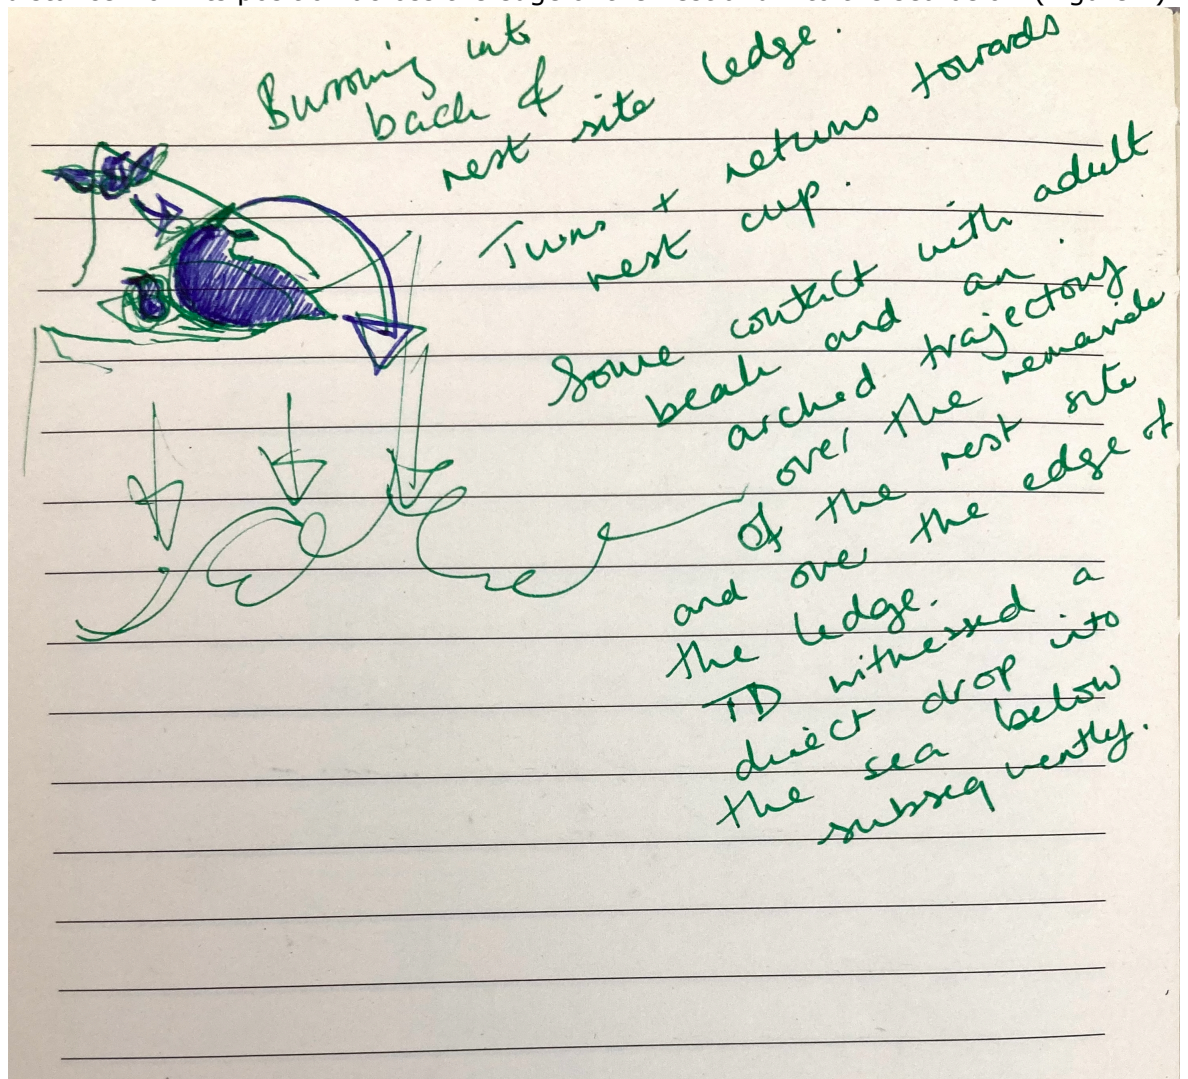 Burrowing into
back of
nest site ledge.
Turns + returns towards
nest cup.
Some contact with adult
beak and an
arched trajectory
over the remainder
of the nest site
and over the edge of
the ledge.
TD witnessed a
direct drop into
the sea below
subsequently.